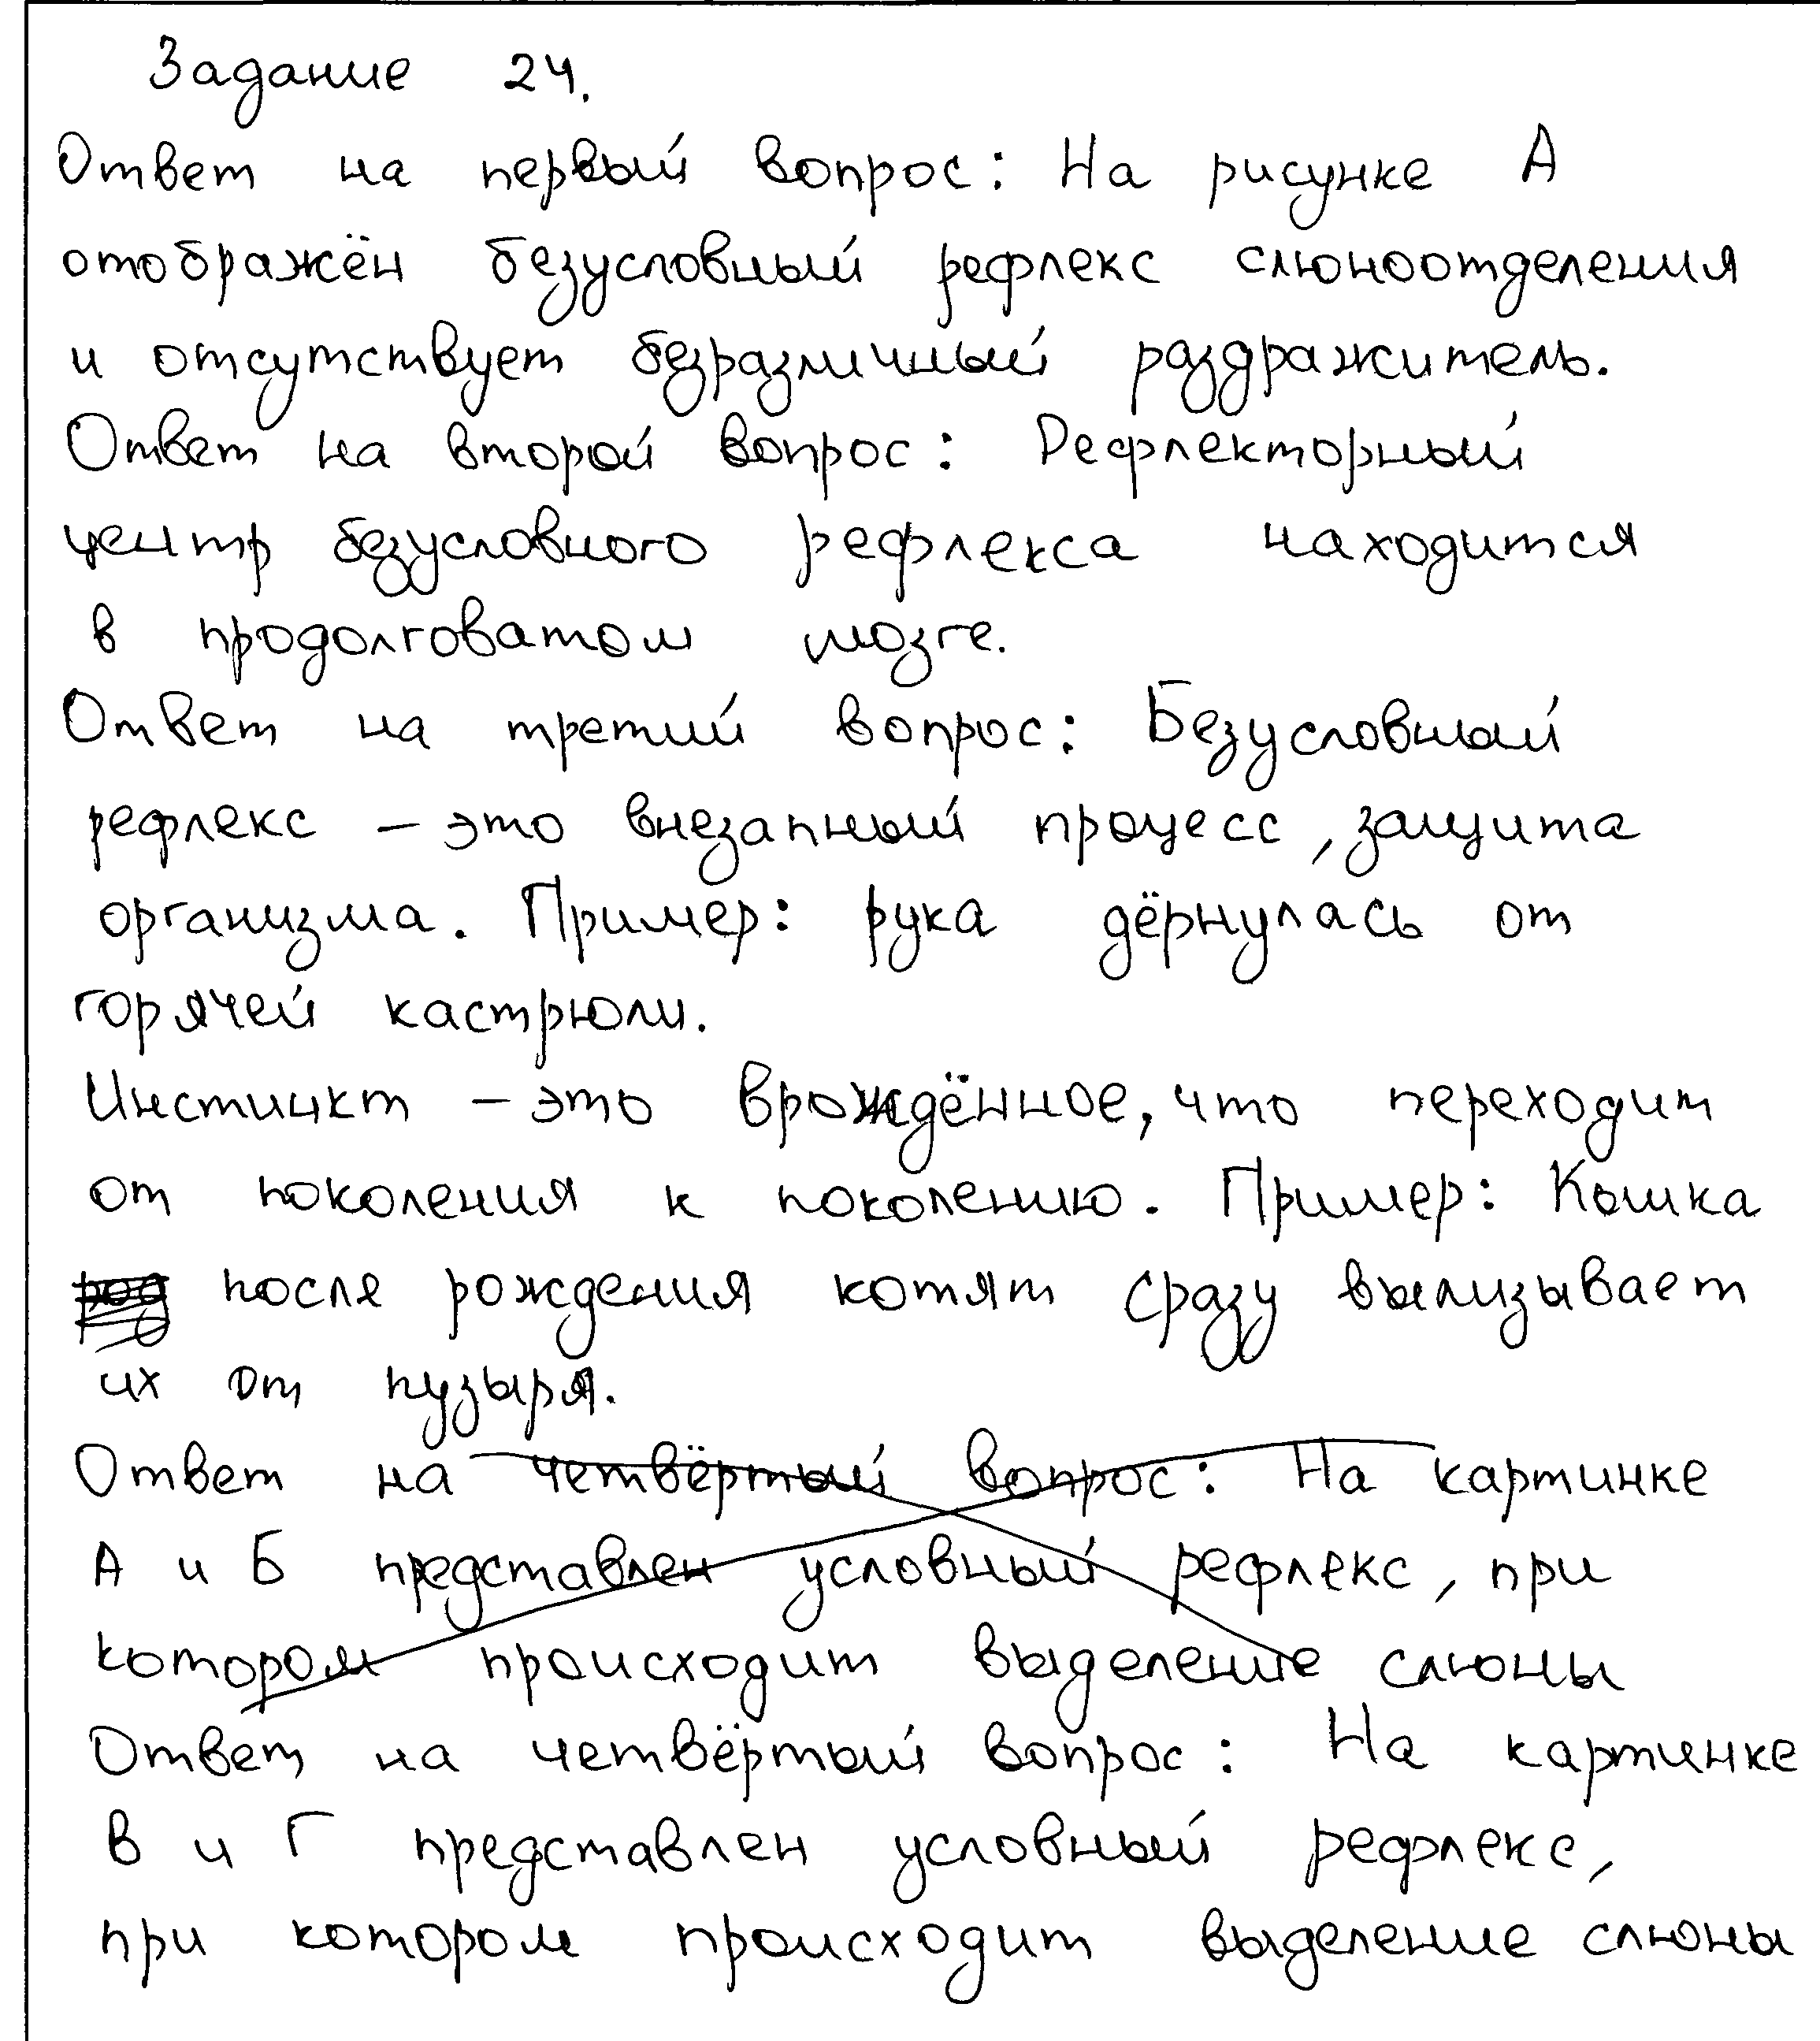 Задание 24.
Ответ на первый вопрос: На рисунке А
отображён безусловный рефлекс слюноотделения
и отсутствует безразличный раздражитель.
Ответ на второй вопрос: Рефлекторный
центр безусловного рефлекса находится
в продолговатом мозге.
Ответ на третий вопрос: Безусловный
рефлекс – это внезапный процесс, защита
организма. Пример: рука дёрнулась от
горячей кастрюли.
Инстинкт – это врождённое, что переходит
от поколения к поколению. Пример: Кошка
после рождения котят сразу вылизывает
их от пузыря.
Ответ на четвёртый вопрос: На картинке
А и Б представлен условный рефлекс, при
котором происходит выделение слюны
Ответ на четвёртый вопрос: На картинке
В и Г представлен условный рефлекс,
при котором происходит выделение слюны